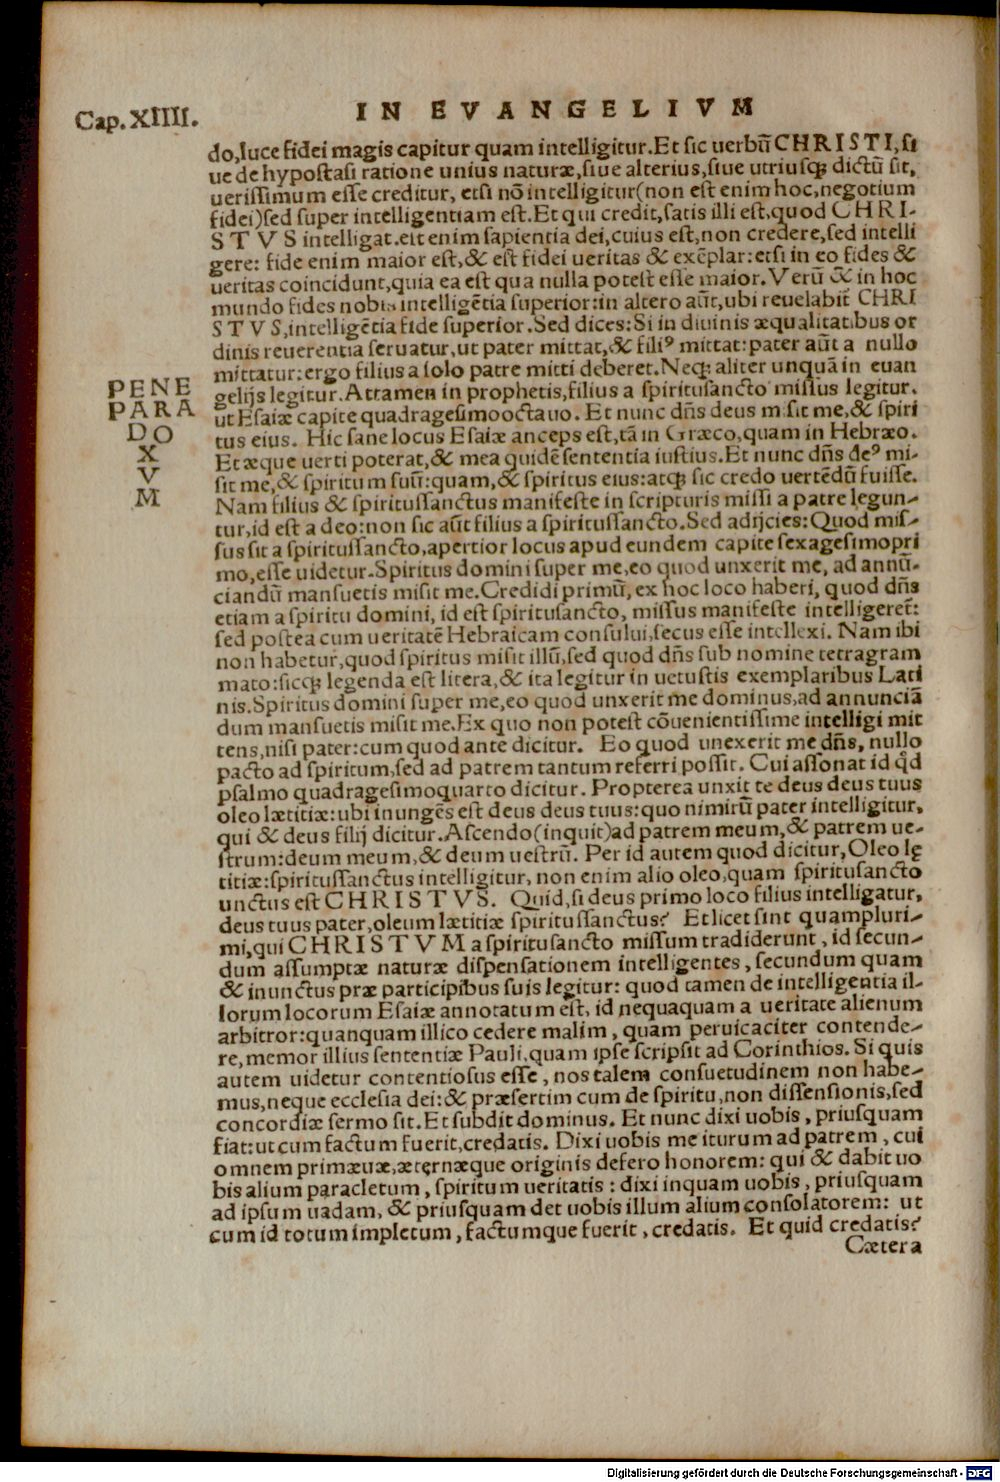 Cap.XIIII.
IN EVANGELIVM
do,luce fidei magis capitur quam intelligitur.Et sic uerbũ CHRISTI,si
ue de hypostasi ratione unius naturæ,siue alterius,siue utriusq; dictũ sit,
uerissimum esse creditur, etsi nõ intelligitur(non est enim hoc,negotium
fidei)sed super intelligentiam est.Et qui credit,satis illi est,quod CHRI-
STVS intelligat.eit enim sapientia dei,cuius est,non credere,sed intelli
gere: fide enim maior est,& est fidei ueritas & exẽplar:etsi in eo fides &
ueritas coincidunt,quia ea est qua nulla potest esse maior.Verũ & in hoc
mundo fides nobis intelligẽtia superior:in altero aũt,ubi reuelabit CHRI
STVS,intelligẽtia fide superior.Sed dices:Si in diuinis æqualitatibus or
dinis reuerentia seruatur,ut pater mittat,& filiꝰ mittat:pater aũt a nullo
mittatur:ergo filius a solo patre mitti deberet.Neq; aliter unquã in euan
gelijs legitur.Attamen in prophetis,filius a spiritusancto missus legitur.
ut Esaiæ capite quadragesimooctauo. Et nunc dñs deus misit me,& spiri
tus eius. Hic sane locus Esaiæ anceps est,tã in Græco,quam in Hebræo.
Et æque uerti poterat,& mea quidẽ sententia iustius.Et nunc dñs deꝰ mi-
sit me,& spiritum suũ:quam,& spiritus eius:atq; sic credo uertẽdũ fuisse.
Nam filius & spiritussanctus manifeste in scripturis missi a patre legun-
tur,id est a deo:non sic aũt filius a spiritussancto.Sed adijcies:Quod mis-
sus sit a spiritussancto,apertior locus apud eundem capite sexagesimopri
mo,esse uidetur.Spiritus domini super me,eo quod unxerit me, ad annũ-
ciandũ mansuetis misit me.Credidi primũ, ex hoc loco haberi, quod dñs
etiam a spiritu domini, id est spiritusancto, missus manifeste intelligeret̃:
sed postea cum ueritatẽ Hebraicam consului,secus esse intellexi. Nam ibi
non habetur,quod spiritus misit illũ,sed quod dñs sub nomine tetragram
mato:sicq; legenda est litera,& ita legitur in uetustis exemplaribus Lati
nis.Spiritus domini super me,eo quod unxerit me dominus,ad annunciã
dum mansuetis misit me.Ex quo non potest cõuenientissime intelligi mit
tens,nisi pater:cum quod ante dicitur. Eo quod unexerit me dñs, nullo
pacto ad spiritum,sed ad patrem tantum referri possit. Cui assonat id qd̃
psalmo quadragesimoquarto dicitur. Propterea unxit te deus deus tuus
oleo lætitiæ:ubi inungẽs est deus deus tuus:quo nimirũ pater intelligitur,
qui & deus filij dicitur.Ascendo(inquit)ad patrem meum,& patrem ue-
strum:deum meum,& deum uestrũ. Per id autem quod dicitur,Oleo lę
titiæ:spiritussanctus intelligitur, non enim alio oleo,quam spiritusancto
unctus est CHRISTVS. Quid,si deus primo loco filius intelligatur,
deus tuus pater,oleum lætitiæ spiritussanctus? Et licet sint quampluri-
mi,qui CHRISTVM a spiritusancto missum tradiderunt, id secun-
dum assumptæ naturæ dispensationem intelligentes, secundum quam
& inunctus præ participibus suis legitur: quod tamen de intelligentia il-
lorum locorum Esaiæ annotatum est, id nequaquam a ueritate alienum
arbitror:quanquam illico cedere malim, quam peruicaciter contende-
re,memor illius sententiæ Pauli,quam ipse scripsit ad Corinthios. Si quis
autem uidetur contentiosus esse, nos talem consuetudinem non habe-
mus,neque ecclesia dei:& præsertim cum de spiritu,non dissensionis,sed
concordiæ sermo sit.Et subdit dominus. Et nunc dixi uobis, priusquam
fiat:ut cum factum fuerit,credatis. Dixi uobis me iturum ad patrem, cui
omnem primæuæ,æternæque originis defero honorem: qui & dabit uo
bis alium paracletum, spiritum ueritatis: dixi inquam uobis, priusquam
ad ipsum uadam, & priusquam det uobis illum alium consolatorem: ut
cum id totum impletum, factumque fuerit, credatis. Et quid credatis?
Cætera
PENE
PARA
DO
X
V
M
Digitalisierung gefördert durch die Deutsche Forschungsgemeinschaft - DFG